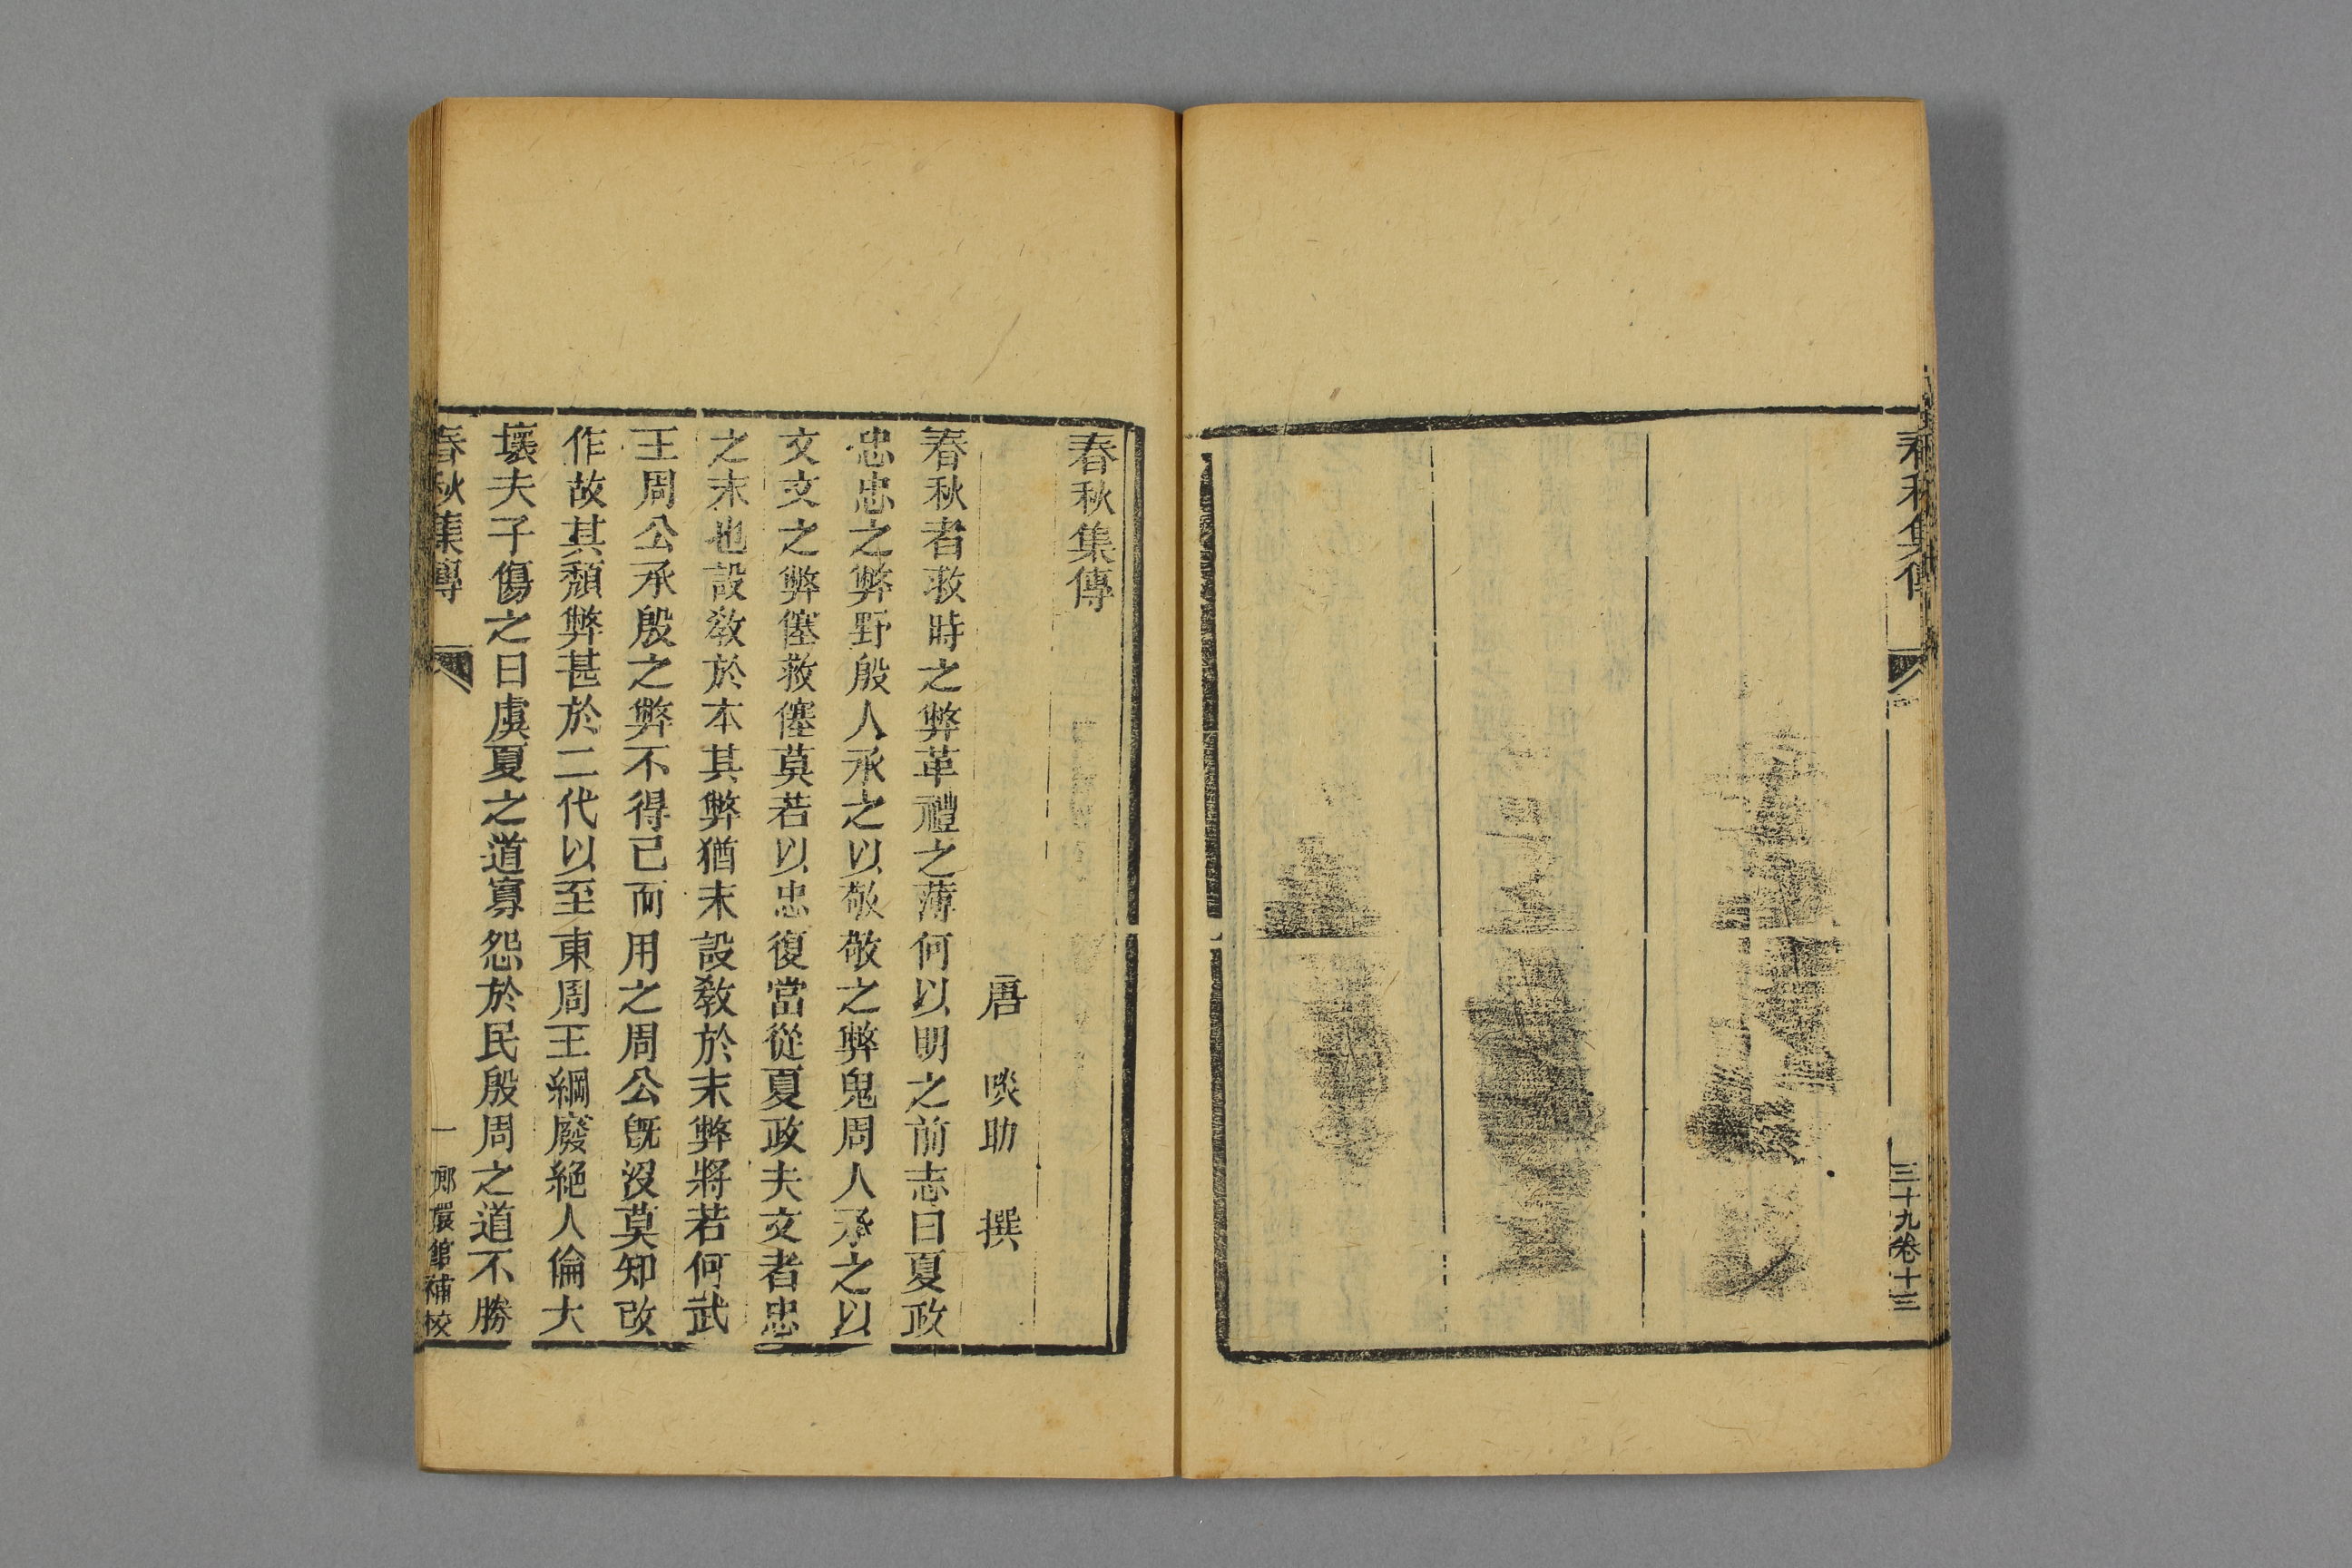 春秋集傳
三十九卷十三
春秋集傳
唐 啖助 撰
春秋者救時之弊革禮之薄何以明之前志曰夏政
忠忠之弊野殷人承之以敬敬之弊鬼周人承之以
文文之弊僿救僿莫若以忠復當從夏政夫文者忠
之末也設敎於本其弊猶末設敎於末弊將若何武
王周公承殷之弊不得已而用之周公旣沒莫知改
作故其頹弊甚於二代以至東周王綱廢絶人倫大
壞夫子傷之曰虞夏之道寡怨於民殷周之道不勝
春秋集傳
一
嫏嬛館補校